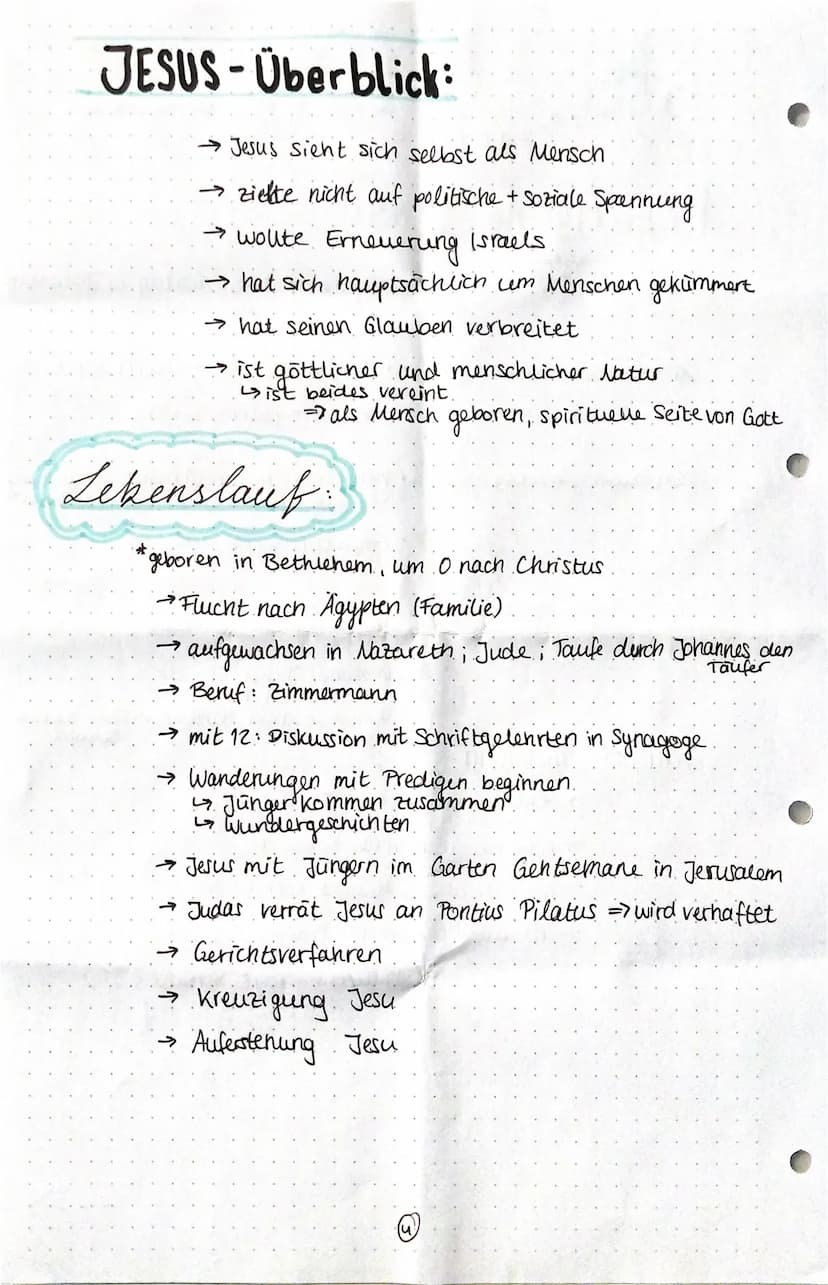 JESUS - Überblick:
→ Jesus sieht sich selbst als Mensch
→ zielte nicht auf politische + soziale Spannung
→ wollte Erneuerung Israels
→ hat sich hauptsächlich um Menschen gekümmert
→ hat seinen Glauben verbreitet
→ ist göttlicher und menschlicher Natur
↳ ist beides vereint
⇒ als Mensch geboren, spirituelle Seite von Gott
Lebenslauf:
*geboren in Bethlehem, um 0 nach Christus
→ Flucht nach Ägypten (Familie)
→ aufgewachsen in Nazareth; Jude; Taufe durch Johannes den
Täufer
→ Beruf: Zimmermann
→ mit 12: Diskussion mit Schriftgelehrten in Synagoge
→ Wanderungen mit Predigen beginnen
↳ Jünger kommen zusammen
↳ Wundergeschichten
→ Jesus mit Jüngern im Garten Gehtsemane in Jerusalem
→ Judas verrät Jesus an Pontius Pilatus ⇒ wird verhaftet
→ Gerichtsverfahren
→ Kreuzigung Jesu
→ Auferstehung Jesu
4